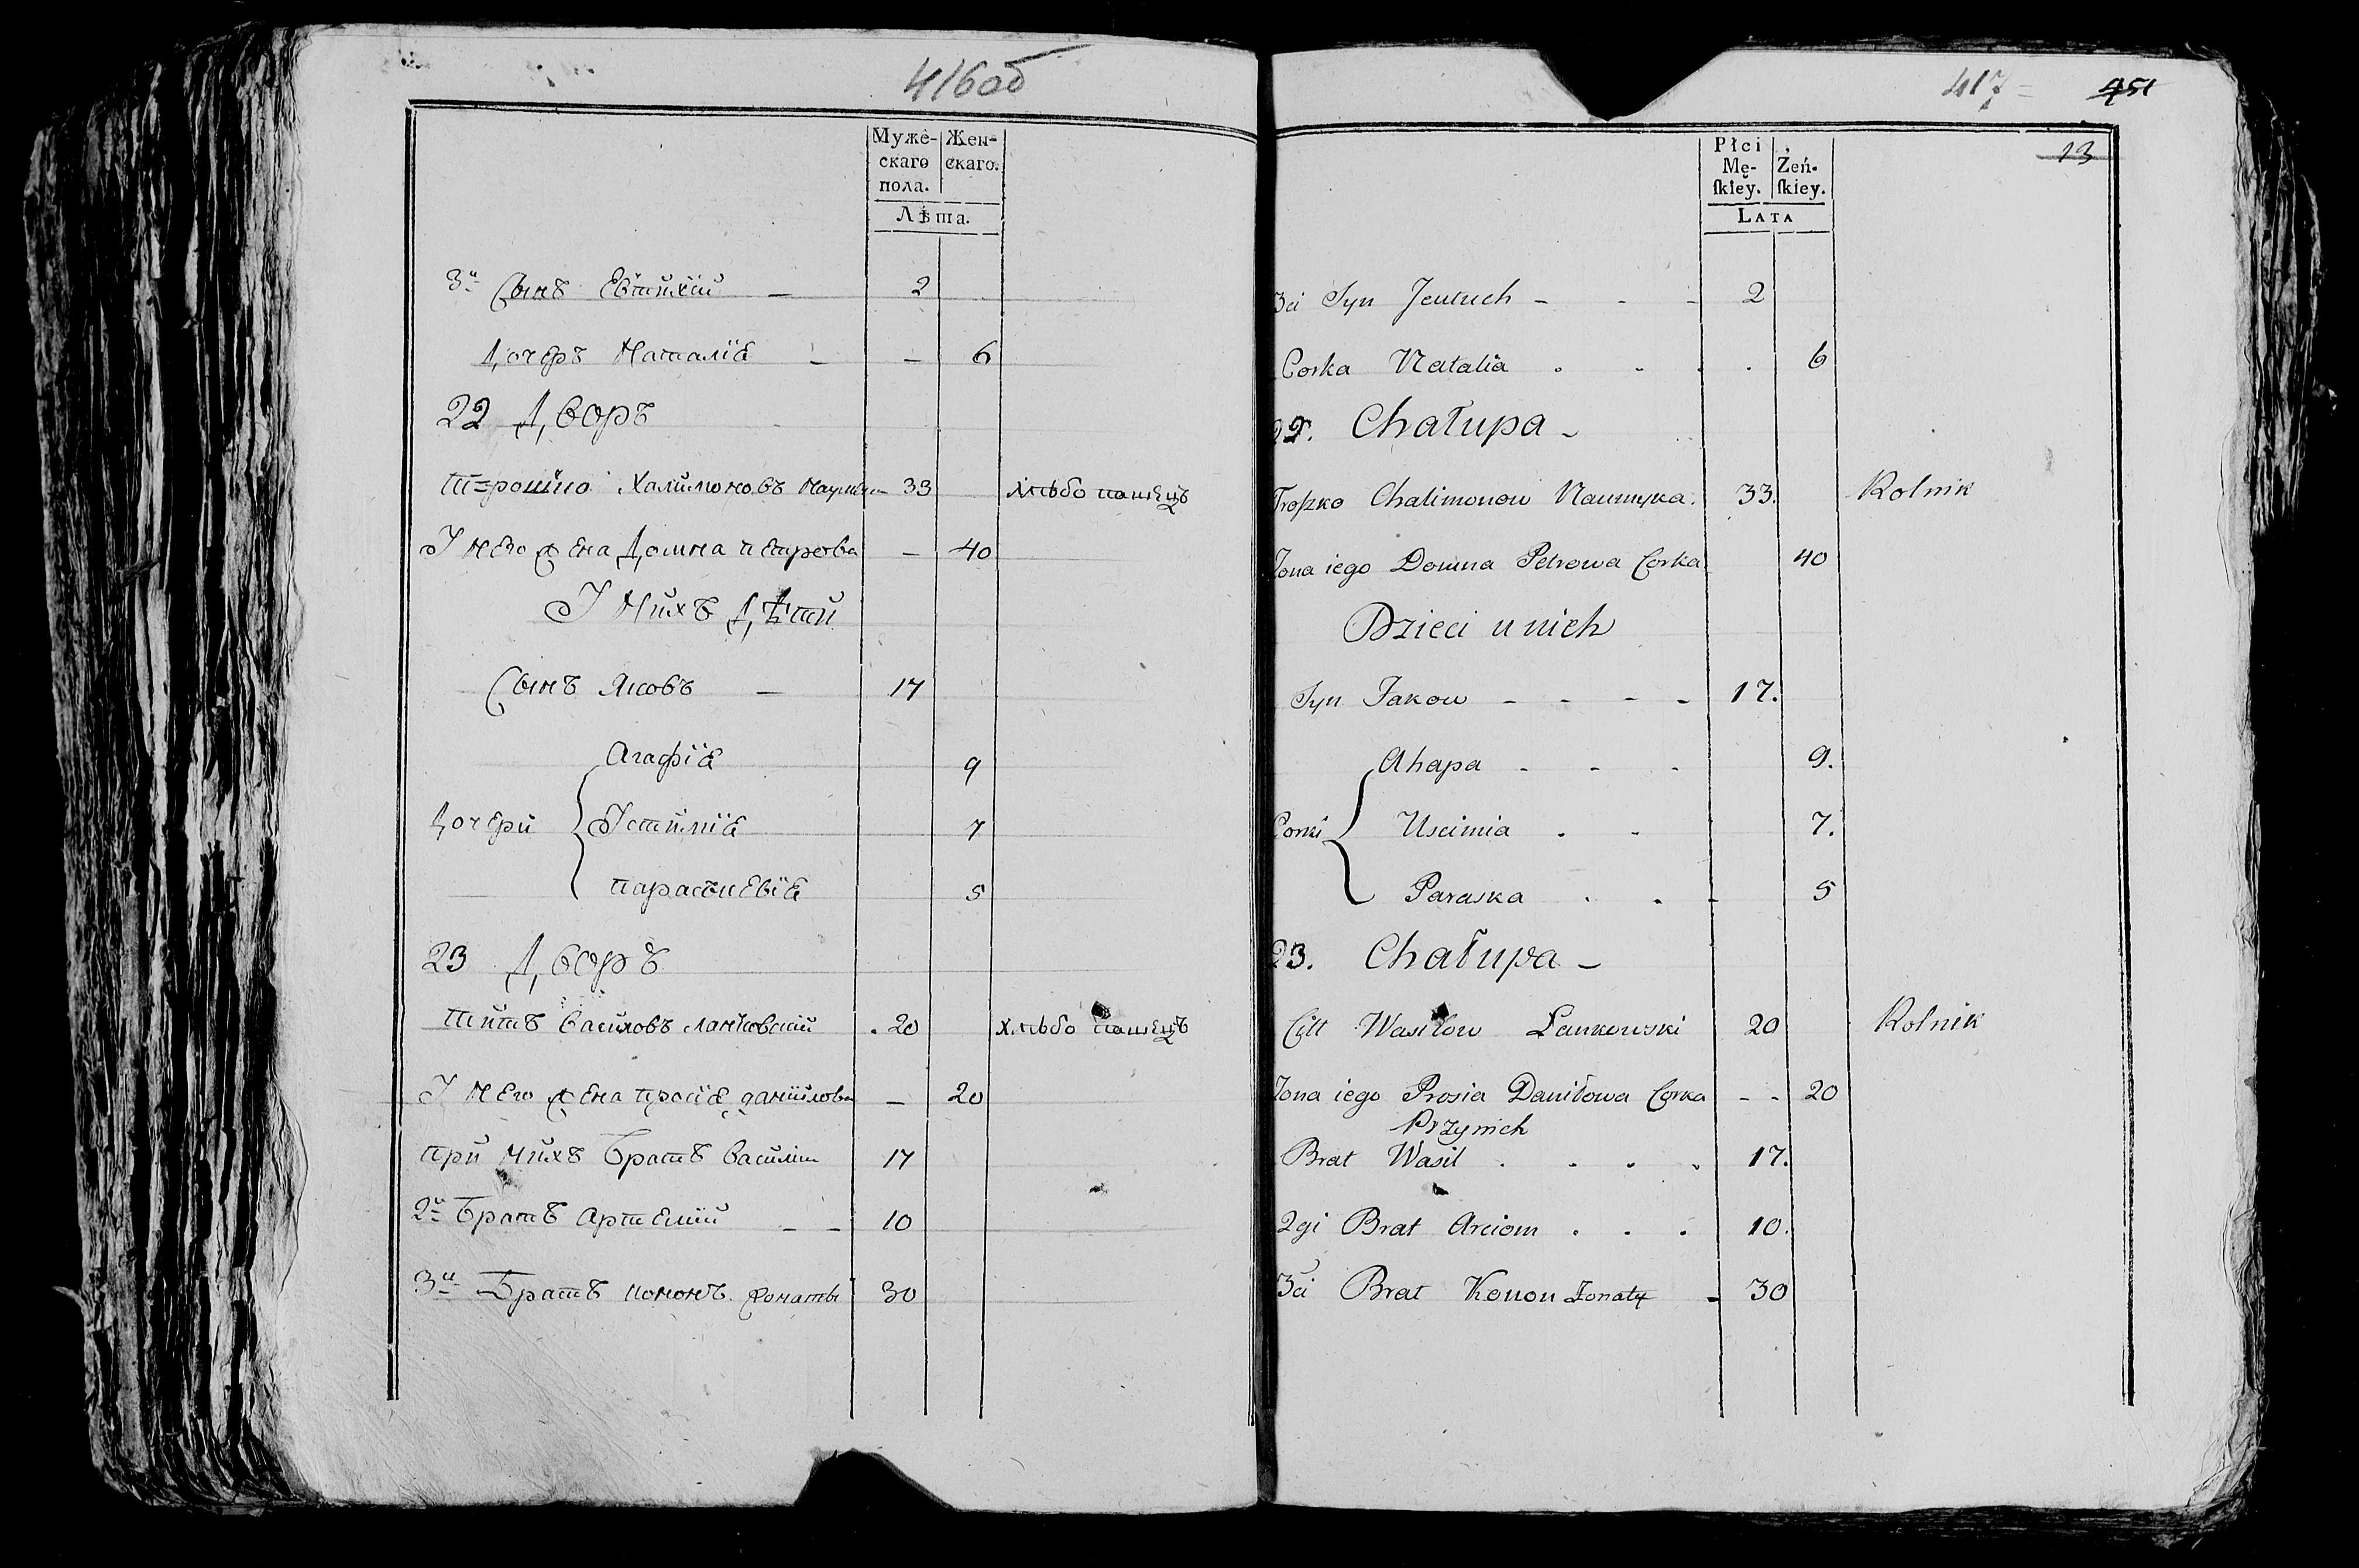 416об
Муже- Жен-
скаго скаго.
пола.
Лѣта.
3й Сынъ Евтихій — 2
Дочеръ Наталія — — 6
22 Дворъ
Трошко Халимоновъ 33 хлѣбопашецъ
У него жена Домна Петрова — 40
У нихъ дѣти
Сынъ Яковъ — 17
Агафія 9
Дочери Устинія 7
Параскевія 5
23 Дворъ
Титъ Василовъ Ланковский 20 хлѣбопашецъ
У него жена Просія Данилова — 20
При нихъ Братъ Василий 17
2й Братъ Артемій — — 10
3й Братъ Кононъ жонаты 30
417 451
13
Płci
Mę- Żeń-
ſkiey. ſkiey.
LATA
3ci Syn Jeutuch - - - 2
Corka Natalia . . . . 6
22. Chałupa -
Troszko Chalimonow 33. Rolnik
Zona iego Domna Petrowa Corka 40
Dzieci u nich
Syn Jakow - - - - 17.
Ahapa - - - 9.
Corki Uscimia . . 7.
Paraska . . . 5
23. Chałupa -
Citt Wasilow Lankowski 20 Rolnik
Zona iego Prosia Daniłowa Corka - - 20
Przynich
Brat Wasil . . . . 17.
2gi Brat Arciom . . . 10.
3ci Brat Konon Zonaty - 30